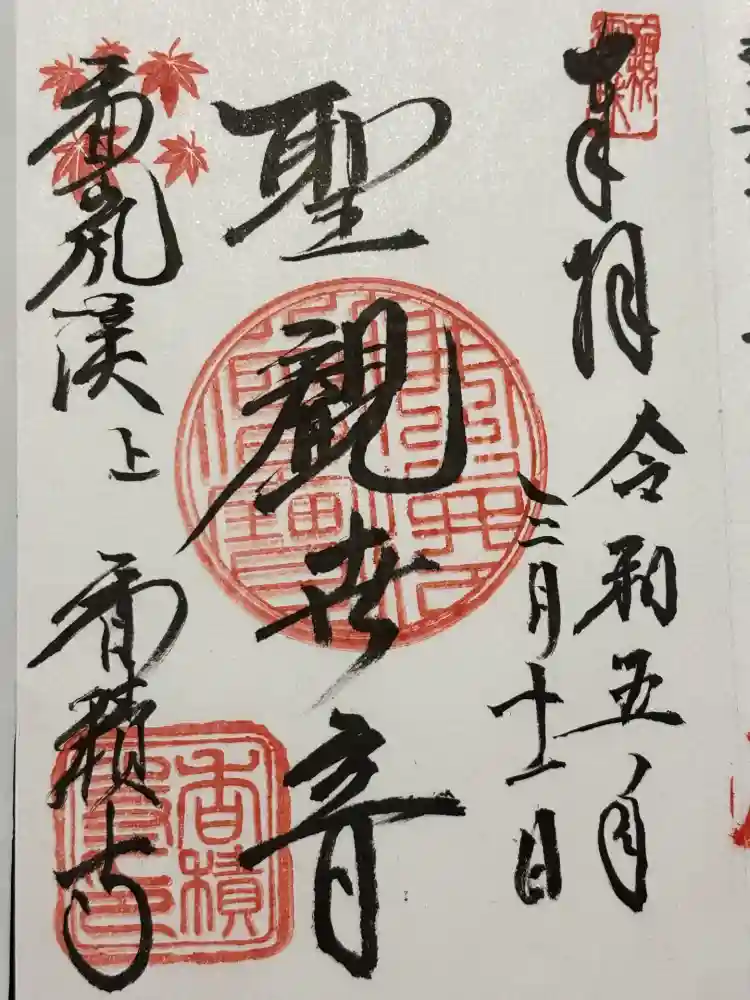 奉拝 令和五年
三月十一日
聖観世音
香嵐渓上 香積寺
香積